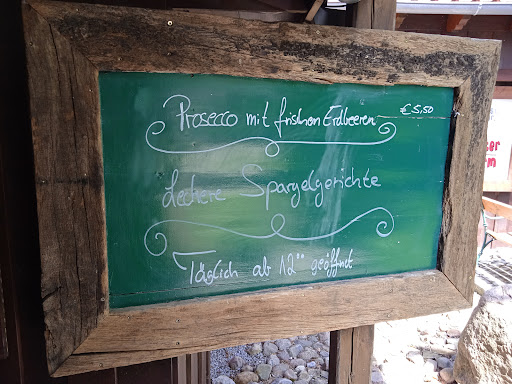 Prosecco mit frischen Erdbeeren € 5,50
Leckere Spargelgerichte
Täglich ab 12°° geöffnet